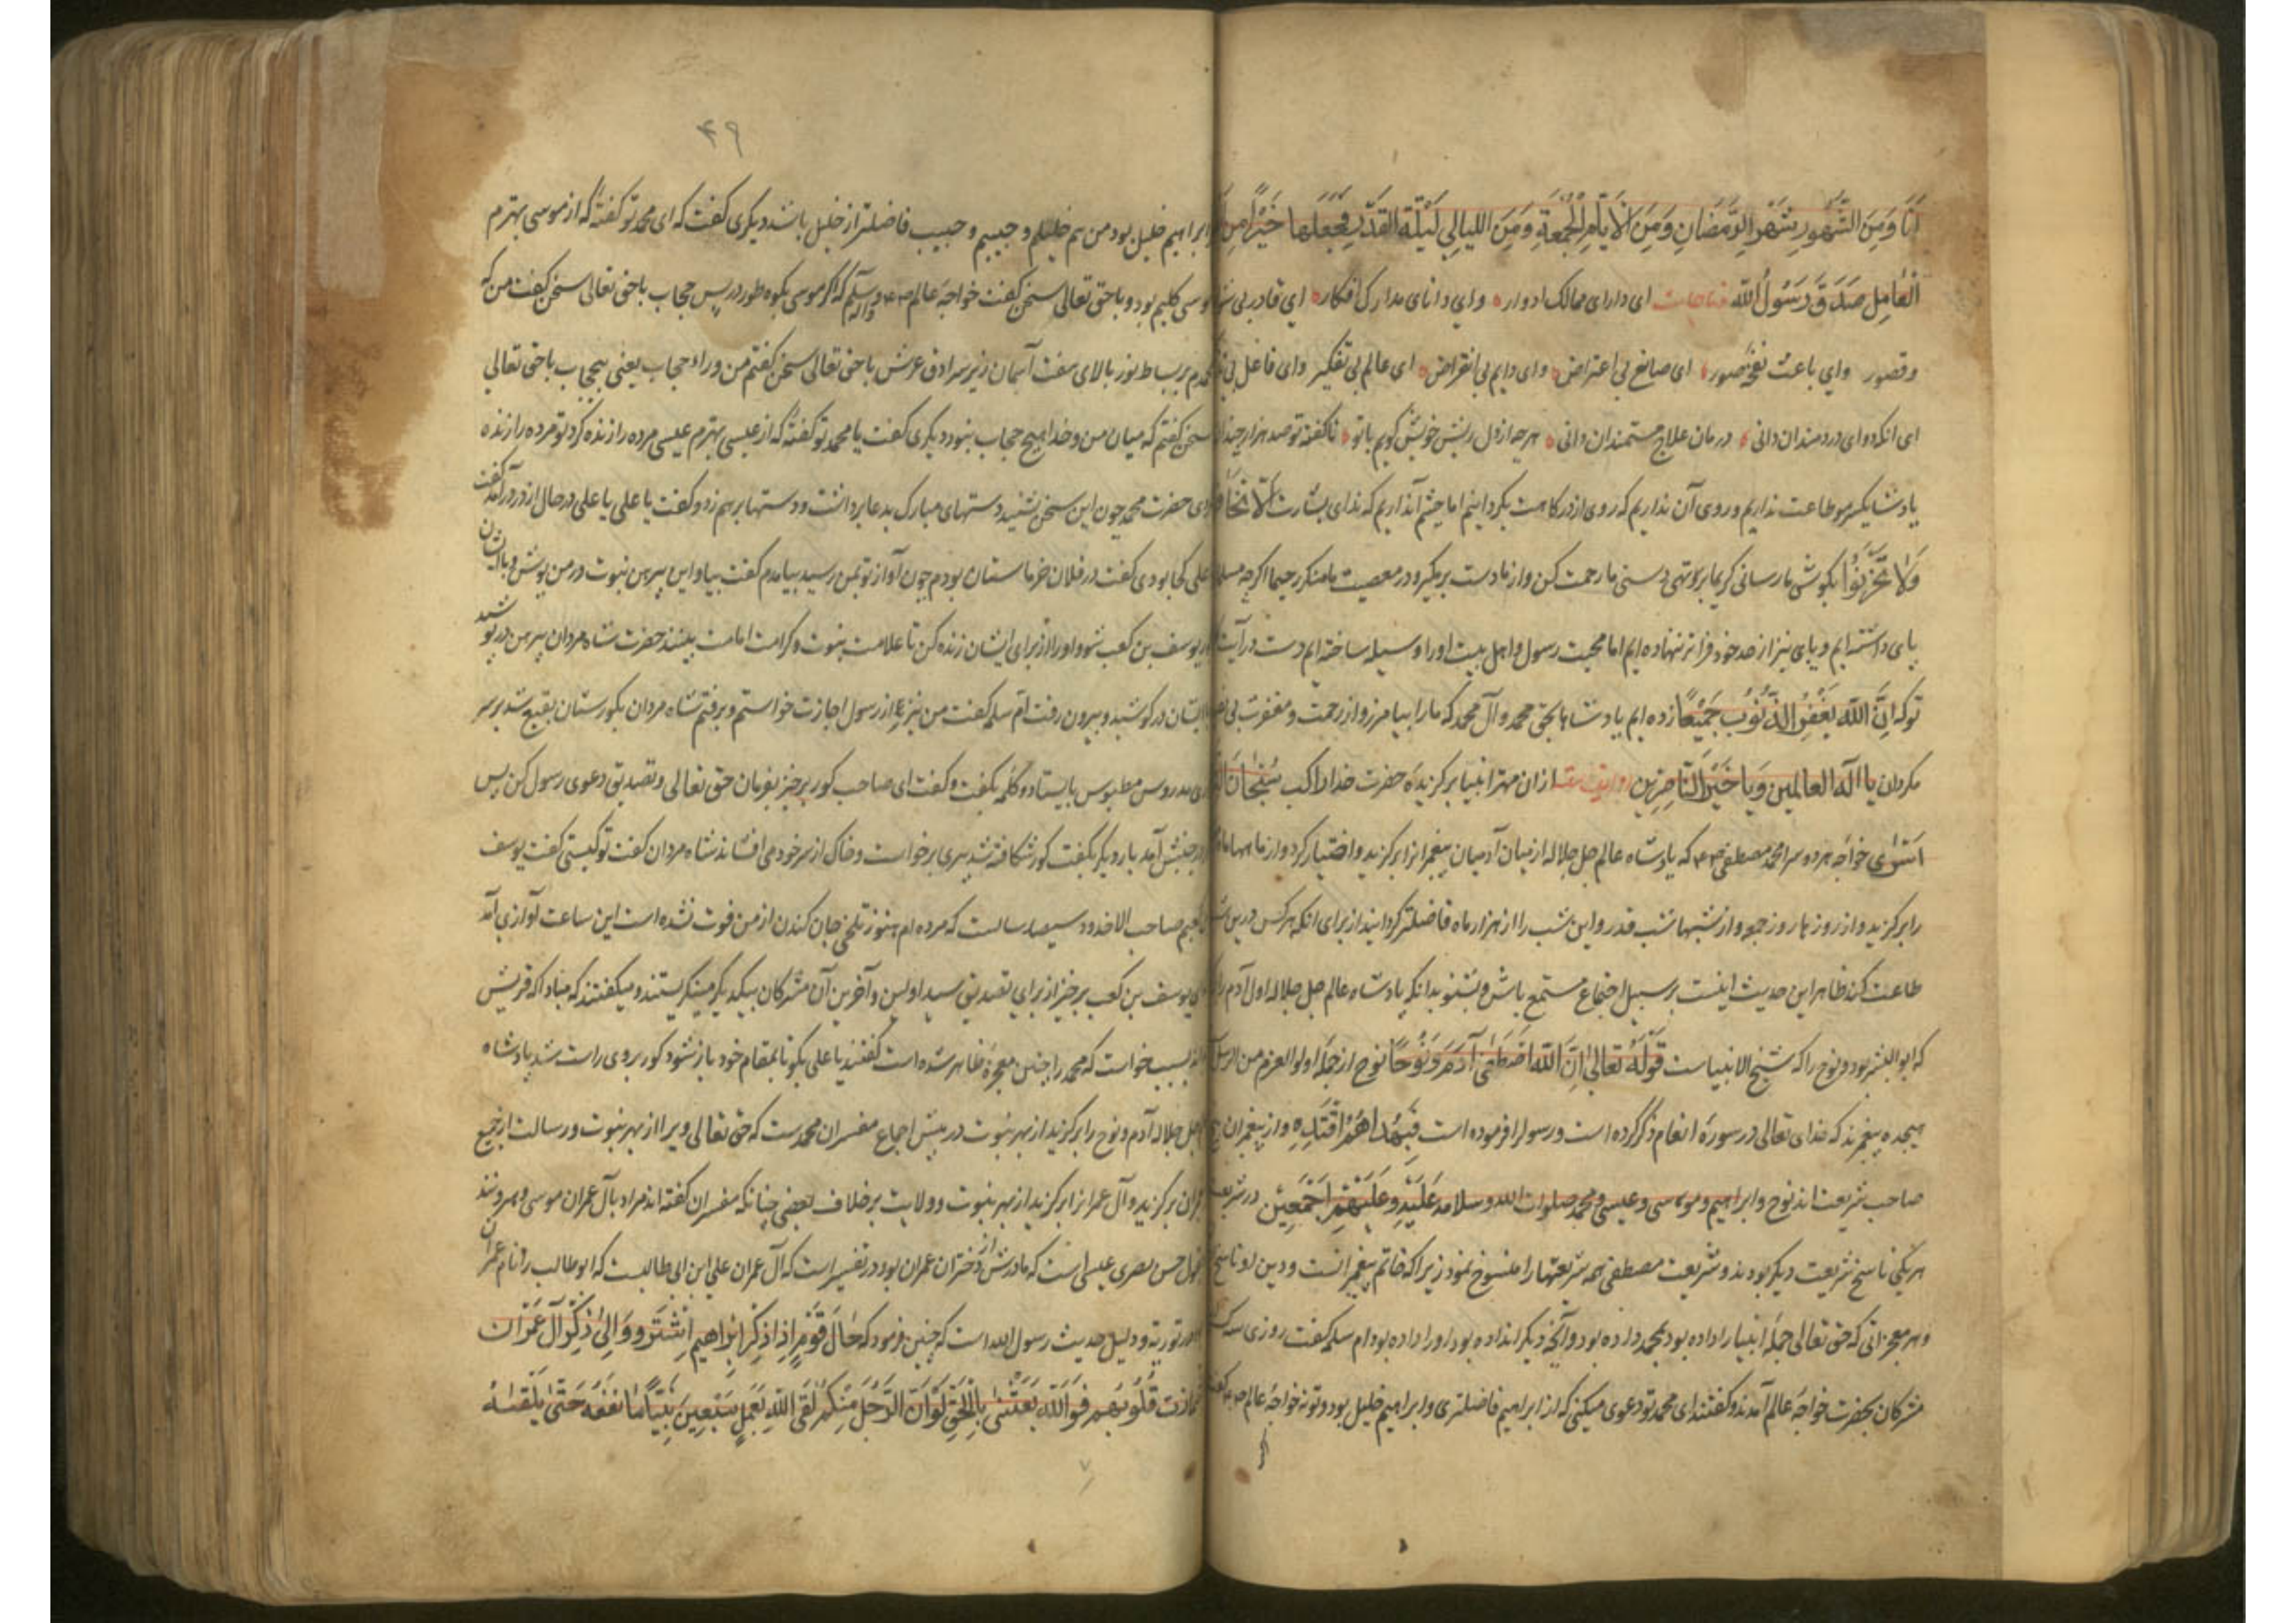 اَنَا وَمِنَ الشُّهُورِ شَهْرَ الرَّمَضَانِ وَمِنَ الْاَيَّامِ الْجُمُعَةِ وَمِنَ اللیالِي لَيْلَةَ القَدْرِ فَجَعَلَهَا خَيْرًا مِنْ
العَامِل صَدَقَ رَسُولُ اللّه مناجات ای دارای ممالک ادوار وای دانای مدارک افکار ای قادر بی
وقصور وای باعث نفخهٔ صور ای صانع بی اعتراض وای دایم بی انقراض ای عالم بی تفکیر وای فاعل بی
ای انکه دوای دردمندان دانی درمان علاج مستمندان دانی هرچه از دل ریش خویش کویم باتو ناکفته تو صد هزار چندان
یادشا یکسر مو طاعت نداریم و روی آن نداریم که روی از درکاهت بکردانیم اما چشم آنداریم که ندای بشارت اَلَّا تَخَافُوا
وَلَا تَحْزَنُوْا بکوش ما رسانی کریما بر تهی دستی ما رحمت کن و از ما دست برمکیر و در معصیت ما منکر رحیما اکرچه
پای داشته ایم و پای نیز از حد خود فراتر نهاده ایم اما محبت رسول و اهل بیت او را وسیله ساخته ایم دست در آیت
تو که اِنَّ اللّٰهَ يَغْفِرُ الذُّنُوْبَ جَمِيْعًا زده ایم یادشاها بحق محمد وآل محمد که ما را بیامرز و از رحمت و مغفرت بی
مکردان یا اله العالمین وَيَا خَيْرَ النَّاصِرِين روایتست از ان مهتر انبیا برکزیدهٔ حضرت خدا راکب سُبْحَانَ الَّذِی
اَسْرٰی خواجه هر دو سرا محمد مصطفی که یادشاه عالم جل جلاله از میان آدمیان پیغمبرانرا برکزید و اختیار کرد و از ماهها ماه
را برکزید و از روزها روز جمعه و از شبها شب قدر و این شب را از هزار ماه فاضلتر کردانید از برای انکه هر کس درین شب
طاعت کند ظاهر این حدیث اینست بر سبیل اجتماع مستمع باش و بشنو بدانکه یادشاه عالم جل جلاله اول آدم را
که ابو البشر بود و نوح را که شیخ الانبیاست قَوْلُهٗ تَعَالٰی اِنَّ اللّٰهَ اصْطَفٰی آدَمَ وَنُوْحًا نوح از جملهٔ اولو العزم من الرسل
هیجده پیغمبرند که خدای تعالی در سورهٔ انعام ذکر کرده است و رسول را فرموده است فَبِهُدٰاهُمُ اقْتَدِهِ و از پیغمبران پنج
صاحب شریعت اند نوح و ابراهیم و موسی و عیسی و محمد صلوات الله و سلامه عَلَيْهِ وَعَلَيْهِمْ اَجْمَعِيْن در شریعت
هریکی ناسخ شریعت دیکر بودند و شریعت مصطفی همه شریعتها را منسوخ نمود زیرا که خاتم پیغمبرانست و دین او ناسخ
و هر معجزاتی که حق تعالی جملهٔ انبیا را داده بود بمحمد داده بود و آنچه دیکرانرا نداده بود او را داده بود ام سلمه کفت روزی
مشرکان بحضرت خواجه عالم آمدند و کفتند ای محمد تو دعوی میکنی که از ابراهیم فاضلتری و ابراهیم خلیل بود و تو نه خواجهٔ عالم
۴۹
ابراهیم خلیل بود من هم خلیلم و حبیبم و حبیب فاضلتر از خلیل باشد دیکری کفت که ای محمد تو کفتهٔ که از موسی بهترم
موسی کلیم بود و با حق تعالی سخن کفت خواجهٔ عالم کفت که اکر موسی بکوه طور در پس حجاب با حق تعالی سخن کفت من که
بر بساط نور بالای هفت آسمان زیر سرادق عرش با حق تعالی سخن کفتم من وراء حجاب یعنی بیحجاب با حق تعالی
سخن کفتم که میان من و خدا هیچ حجاب نبود دیکری کفت یا محمد تو کفتهٔ که از عیسی بهترم عیسی مرده را زنده کرد تو مرده را زنده
حضرت محمد چون این سخن بشنید دستهای مبارک بدعا برداشت و دستها برهم زد و کفت یا علی یا علی در حال از در درآمد کفت
علی کجا بودی کفت در فلان خرماستان بودم چون آواز تو بمن رسید بیامدم کفت بیا و این پیرهن نبوت در من پوش و با ایشان
یوسف بن کعب شو و او را از برای ایشان زنده کن تا علامت نبوت و کرامت امامت بینند حضرت شاه مردان پیرهن در پوشید
بیرون رفت ام سلمه کفت من نیز از رسول اجازت خواستم و برفتم شاه مردان بکورستان بقیع شد بر سر
مدروس مطموس بایستاد و کلمهٔ بکفت و کفت ای صاحب کور برخیز بفرمان حق تعالی و تصدیق دعوی رسول کن پس
در جنبش آمد بار دیکر بکفت کور شکافته شد پیری برخواست و خاک از سر خود می افشاند شاه مردان کفت تو کیستی کفت یوسف
کعبم صاحب الاخدود سیصد سالست که مرده ام هنوز تلخی جان کندن از من فوت نشده است این ساعت آوازی آمد
ای یوسف بن کعب برخیز از برای تصدیق سید اولین و آخرین آن مشرکان بیکدیکر مینکریستند و میکفتند که مبادا که قریش
خواست که محمد را چنین معجزه ظاهر شده است کفتند یا علی بکو تا بمقام خود باز شود کور بروی راست شد یادشاه
جل جلاله آدم و نوح را برکزید از بهر نبوت در پیش اجماع مفسران محمدست که حق تعالی ویرا از بهر نبوت و رسالت از جمیع
برکزید و آل عمرانرا برکزید از بهر نبوت و ولایت بر خلاف بعضی چنانکه مفسران کفته اند مراد بآل عمران موسی و هرونند
حسن بصری عیسی است که مادرش از دختران عمران بود و در تفسیر است که آل عمران علی ابن ابی طالبست که ابو طالب را نام عمران
در توریة و دلیل حدیث رسول الله است که چنین فرمود که مَالَ قَوْمٍ اِذَا ذُكِرَ اِبْرَاهِيم وَاِلٰی ذِكْرِ آلَ عِمْرَان
قُلُوبُهُم فَوَاللّٰهِ بَعَثَنِی بِالْحَقِّ لَوْ اَنَّ الرَّجُلَ مِنْكُمْ لَقَی اللّٰهَ بِعَمَلِ سَبْعِينَ نَبِيًّا مَا نَفَعَهُ حَتّٰی يَلْقَاهُ